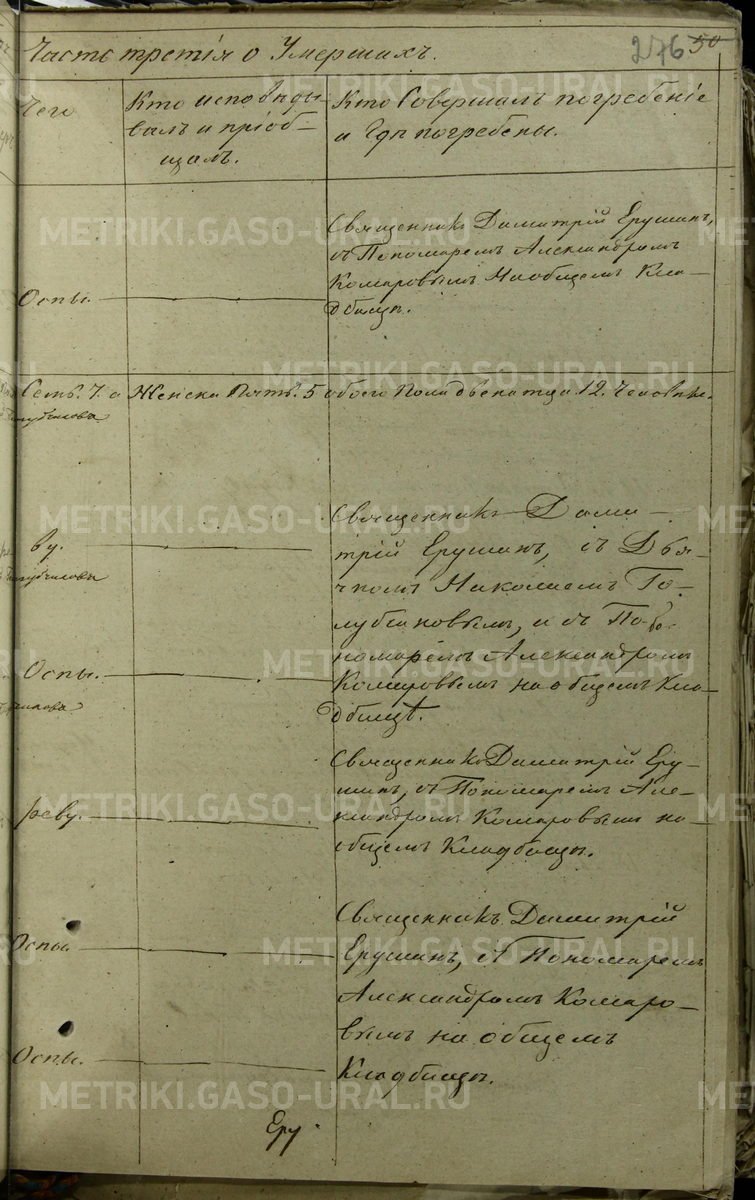 Часть третія о Умершихъ.
276 50
Чего
Кто исповѣды
валъ и пріоб-
щалъ.
Кто Совершалъ погребеніе
и Гдѣ погребены.
Священникъ Димитрій Ерушинъ,
съ Пономаремъ Александромъ
Комаровымъ На общемъ Кла-
дбищѣ.
Оспы.
Семь. 7. а Женска Пять. 5 обоего Пола двенатца 12. Человѣкъ.
Священникъ Дими-
трій Ерушинъ, съ Дья-
чкомъ Николаемъ Го-
лубчиковымъ, и съ По-
номаремъ Александромъ
Комаровымъ на общемъ Кла-
дбищѣ.
ву.
Оспы.
Священникъ Димитрій Еру-
шинъ, съ Пономаремъ Але-
ксандромъ Комаровымъ на
общемъ Кладбищѣ.
реву.
Священникъ Димитрій
Ерушинъ, съ Пономаремъ
Александромъ Комаро-
вымъ на общемъ
Кладбищѣ.
Оспы.
Оспы.
Еру
METRIKI.GASO-URAL.RU